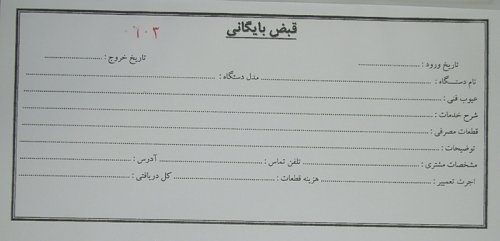 قبض بایگانی
۰۱۰۳
تاریخ ورود : تاریخ خروج :
نام دستگاه : مدل دستگاه :
عیوب فنی :
شرح خدمات :
قطعات مصرفی :
توضیحات :
مشخصات مشتری : تلفن تماس : آدرس :
اجرت تعمیر : هزینه قطعات : کل دریافتی :